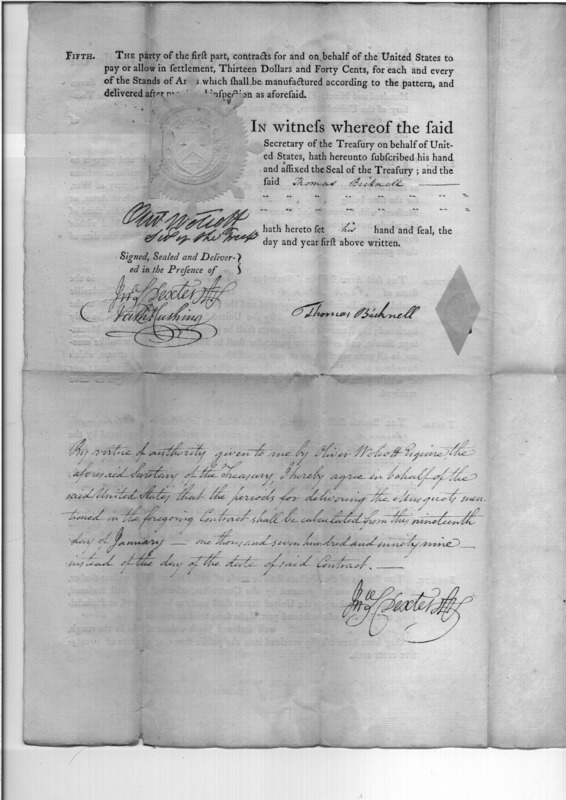 FIFTH. THE party of the firſt part, contracts for and on behalf of the United States to
pay or allow in ſettlement, Thirteen Dollars and Forty Cents, for each and every
of the Stands of A which ſhall be manufactured according to the pattern, and
delivered after inſpection as aforeſaid.
IN witneſs whereof the ſaid
Secretary of the Treaſury on behalf of Unit-
ed States, hath hereunto ſubſcribed his hand
and affixed the Seal of the Treaſury; and the
ſaid Thomas Bicknell
hath hereto ſet his hand and ſeal, the
day and year firſt above written.
Oliv. Wolcott
Sec of the Treas
Signed, Sealed and Deliver-
ed in the Preſence of
Dexter
Cushing
Thomas Bicknell
By virtue of authority given to me by Oliver Wolcott Esquire, the
aforesaid Secretary of the Treasury, I hereby agree in behalf of the
said United States that the periods for delivering the Musquets men-
tioned in the foregoing Contract shall be calculated from this nineteenth
day of January — one thousand seven hundred and ninety nine —
instead of the day of the date of said Contract. —
Dexter